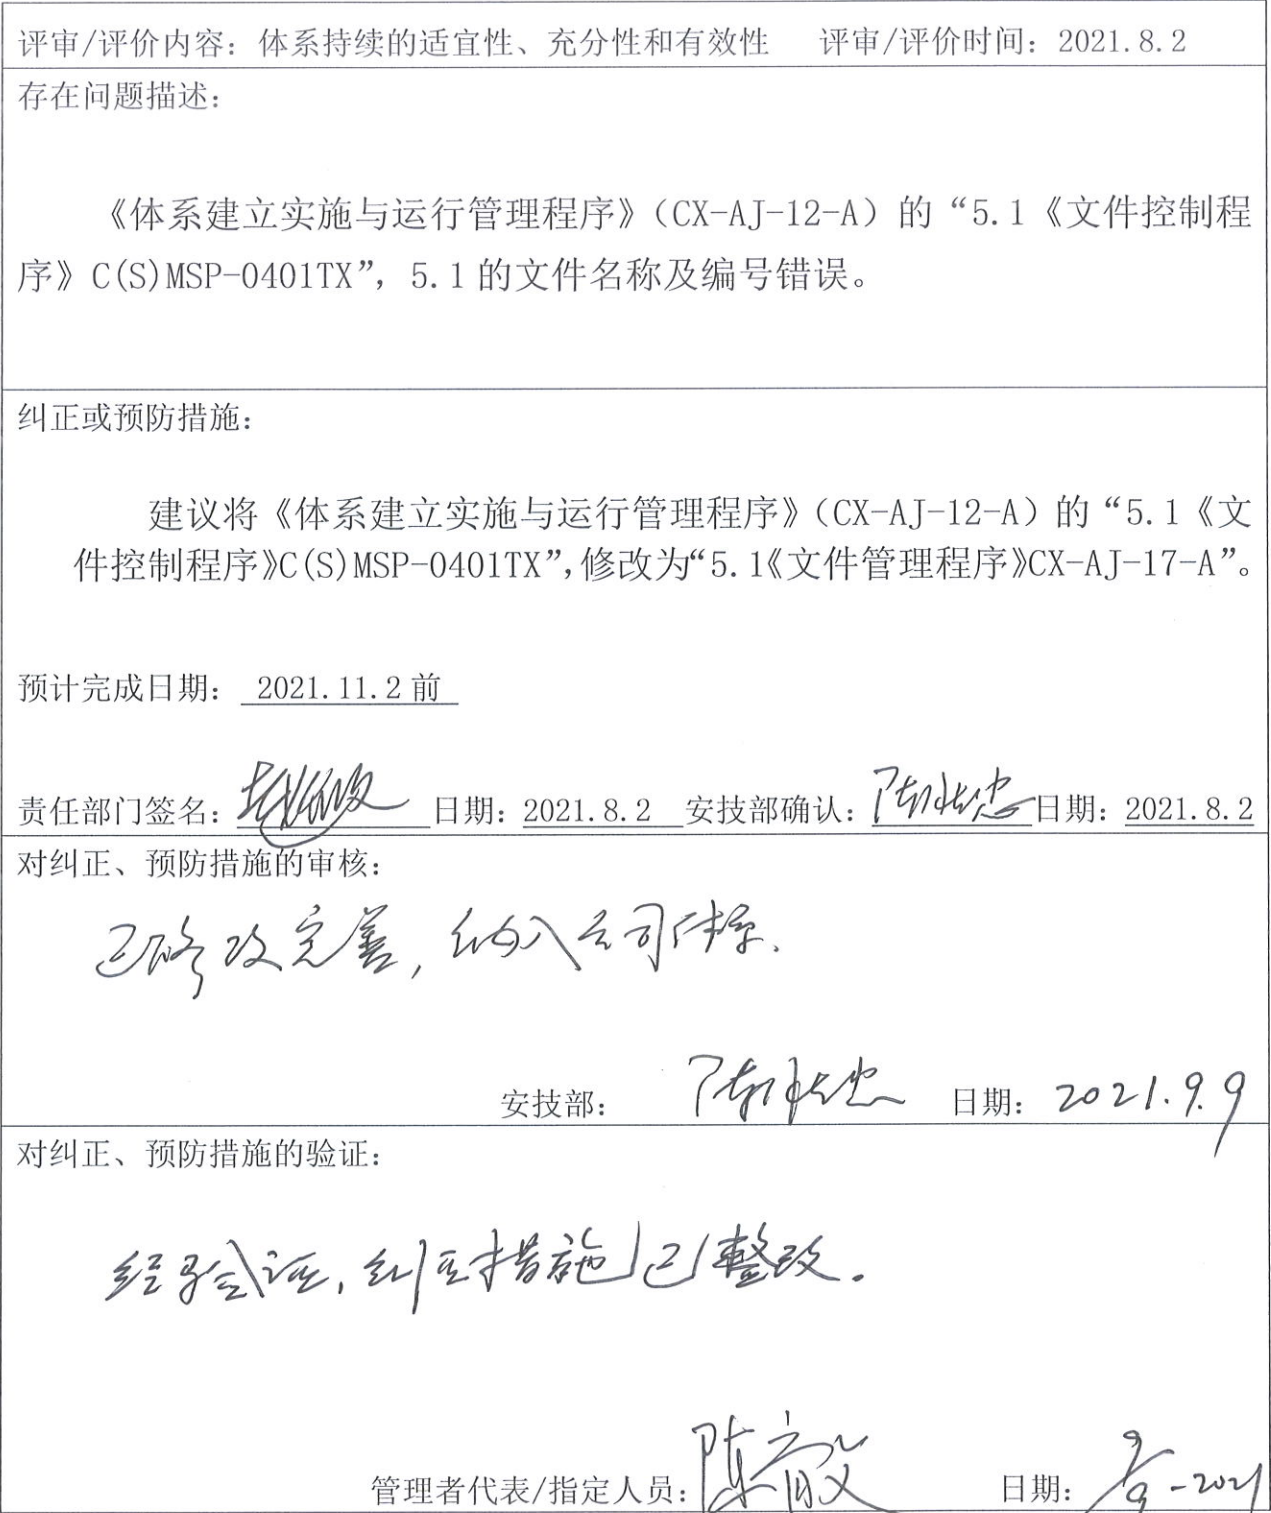 评审/评价内容：体系持续的适宜性、充分性和有效性 评审/评价时间：2021.8.2
存在问题描述：
《体系建立实施与运行管理程序》（CX-AJ-12-A）的“5.1《文件控制程
序》C(S)MSP-0401TX”，5.1的文件名称及编号错误。
纠正或预防措施：
建议将《体系建立实施与运行管理程序》（CX-AJ-12-A）的“5.1《文
件控制程序》C(S)MSP-0401TX”，修改为“5.1《文件管理程序》CX-AJ-17-A”。
预计完成日期：2021.11.2前
责任部门签名： 日期：2021.8.2 安技部确认： 日期：2021.8.2
对纠正、预防措施的审核：
已修改完善，纳入公司体系.
安技部： 日期：2021.9.9
对纠正、预防措施的验证：
经验证，纠正措施已整改。
管理者代表/指定人员： 日期：9/9-2021